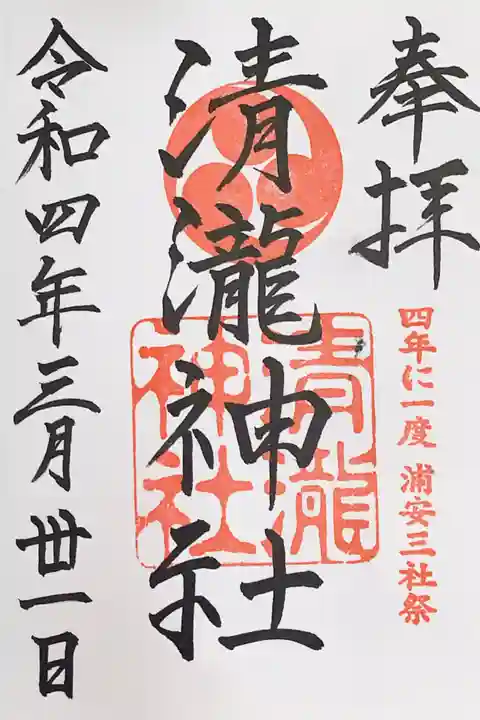 奉拝
四年に一度 浦安三社祭
清瀧神社
清瀧
神社
令和四年三月丗一日